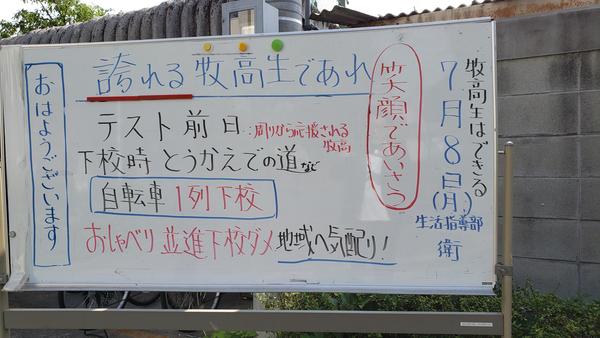 誇れる牧高生であれ
おはようございます
テスト前日:周りから応援される
牧高
下校時とうかえでの道など
自転車1列下校
おしゃべり並進下校ダメ地域へ気配り!
笑顔であいさつ
牧高生はできる
7月8日(月)
生活指導部
衛